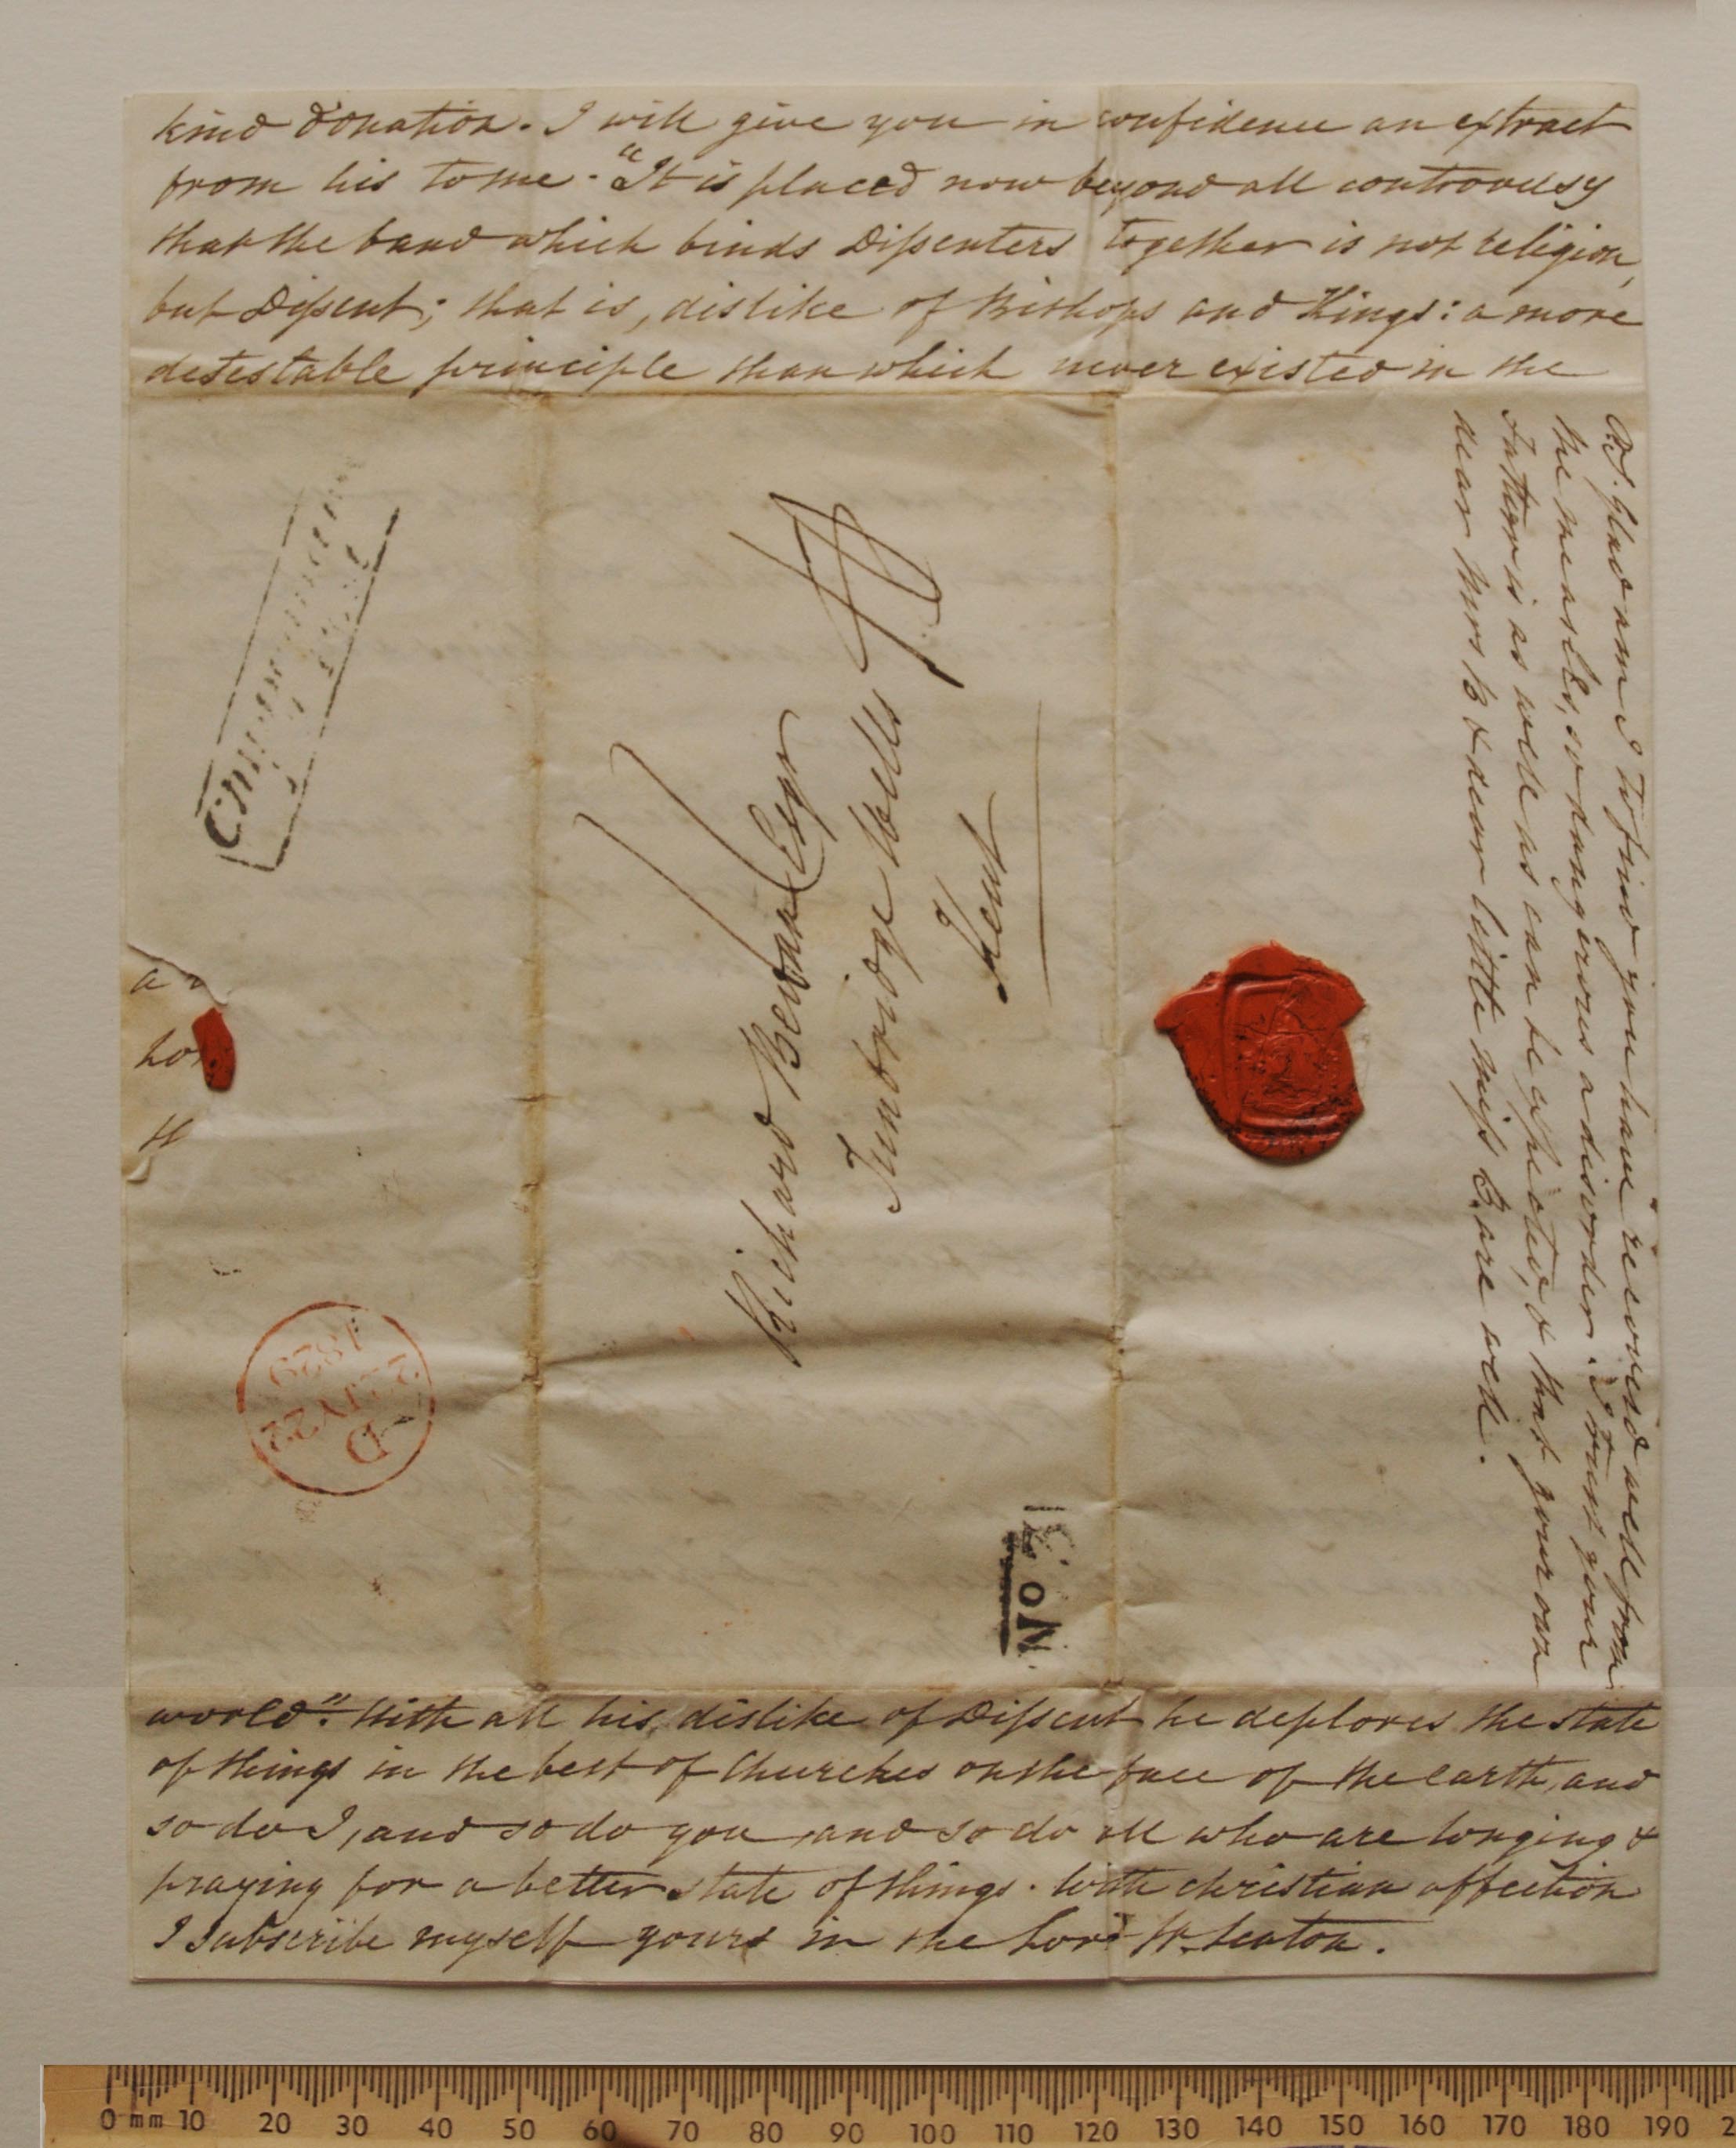 kind donation. I will give you in confidence an extract
from his to me. "It is placed now beyond all controversy
that the band which binds Dissenters together is not religion,
but Dissent; that is, dislike of Bishops and Kings: a more
detestable principle than which never existed in the
P.S. Glad am I to find you have recovered well from
the measles, so dangerous a disorder. I trust your
Father is as well as can be expected, & that your own
dear Mrs B & dear little Miss B. are well.
Richard Bevan Esqr
Tunbridge Wells
Kent
No. 1
D
22 JY 22
1829
a
hon
H
world." With all his dislike of Dissent he deplores the state
of things in the best of Churches on the face of the earth, and
so do I, and so do you, and so do all who are longing &
praying for a better state of things. With christian affection
I subscribe myself yours in the Lord W. Seaton.
0 mm 10 20 30 40 50 60 70 80 90 100 110 120 130 140 150 160 170 180 190